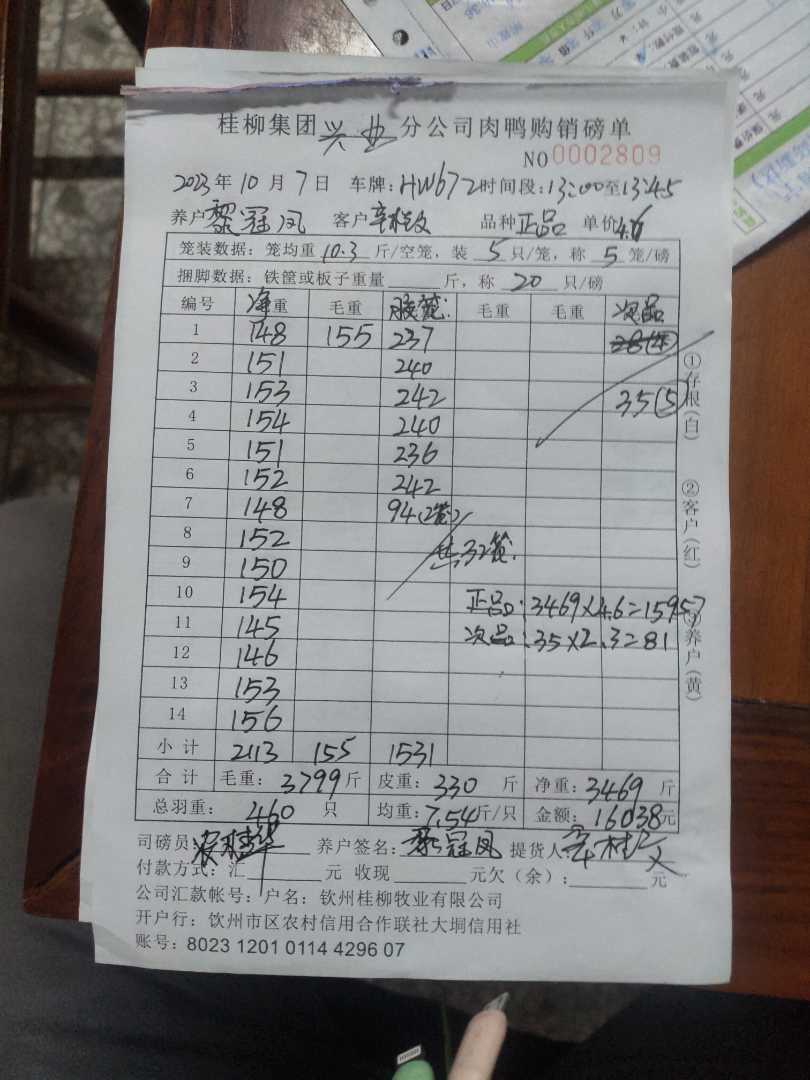 桂柳集团兴业分公司肉鸭购销磅单
NO 0002809
2023年10月7日 车牌:HW672时间段:13:00至13:45
养户黎冠凤 客户辛桂文 品种正品 单价4.6
笼装数据:笼均重10.3斤/空笼,装5只/笼,称5笼/磅
捆脚数据:铁筐或板子重量 斤,称20只/磅
编号 净重 毛重 胶笼: 毛重 毛重 次品
1 148 155 237 28(4)
2 151 240
3 153 242 35(5)
4 154 240
5 151 236
6 152 242
7 148 94(2笼)
8 152 共32笼.
9 150
10 154 正品:3469×4.6=15957
11 145 次品:35×2.3=81
12 146
13 153
14 156
小计 2113 155 1531
合计 毛重:3799斤 皮重:330斤 净重:3469斤
总羽重:460只 均重:7.54斤/只 金额:16038元
司磅员 养户签名:黎冠凤 提货人:辛桂文
付款方式:汇 元 收现 元欠(余): 元
公司汇款帐号:户名:钦州桂柳牧业有限公司
开户行:钦州市区农村信用合作联社大垌信用社
账号:8023 1201 0114 4296 07
①存根(白)
②客户(红)
③养户(黄)